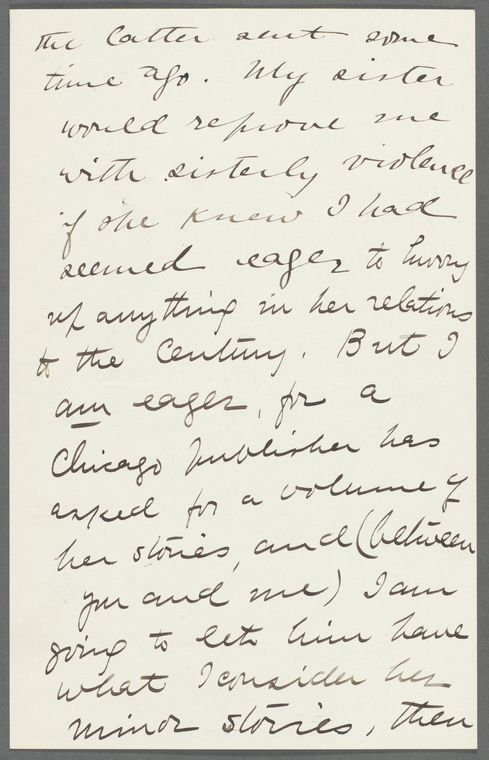 the latter sent some
time ago. My sister
would reprove me
with sisterly violence
if she knew I had
seemed eager to hurry
up anything in her relations
to the Century. But I
am eager, for a
Chicago publisher has
asked for a volume of
her stories, and (between
you and me) I am
going to let him have
what I consider her
minor stories, then